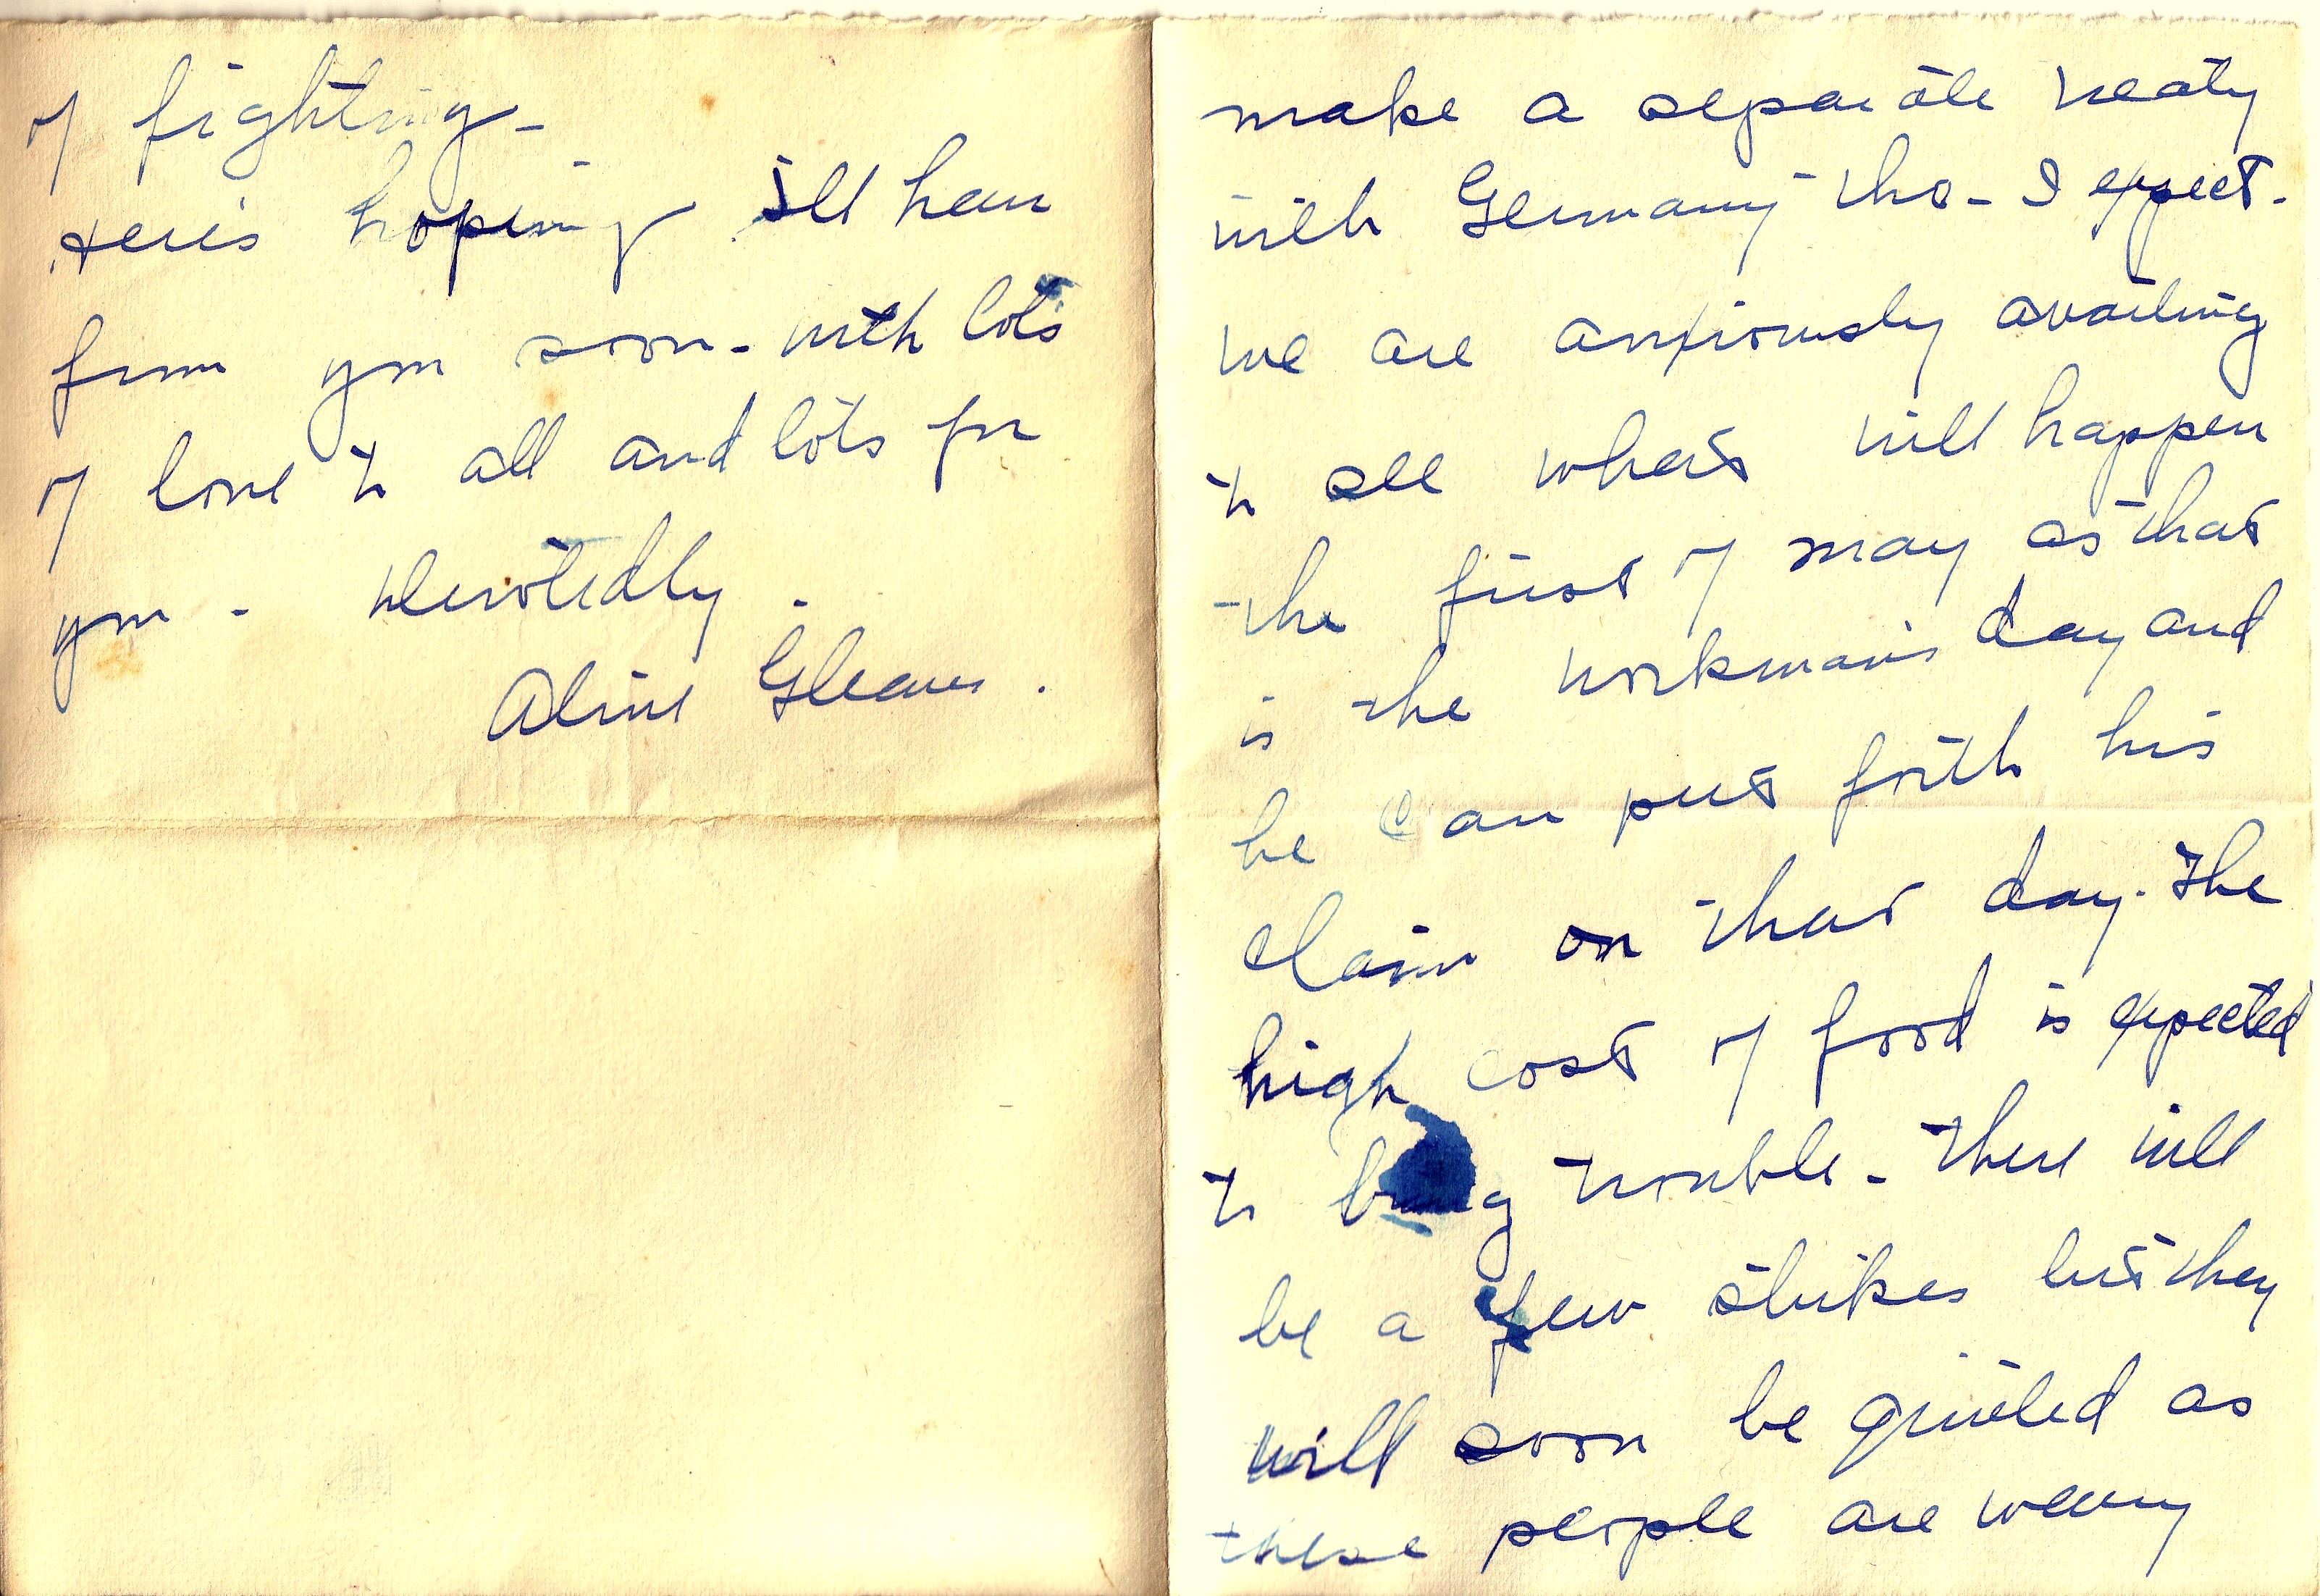 make a separate treaty
with Germany tho - I expect -
we are anxiously awaiting
to see what will happen
the first of may as that
is the workman's day and
he can put forth his
claim on that day. The
high cost of food is expected
to bring trouble - There will
be a few strikes but they
will soon be quieted as
these people are weary
of fighting -
Here's hoping I'll hear
from you soon - with lots
of love to all and lots for
you - Devotedly.
Aline Gleaves.